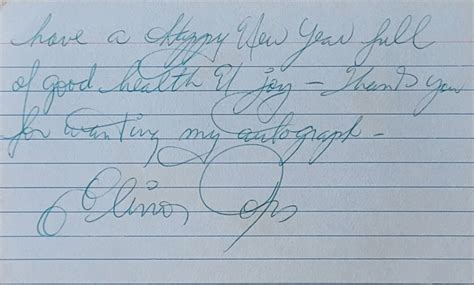 have a Happy New Year full
of good health & joy – Thank you
for wanting my autograph –
Elinor